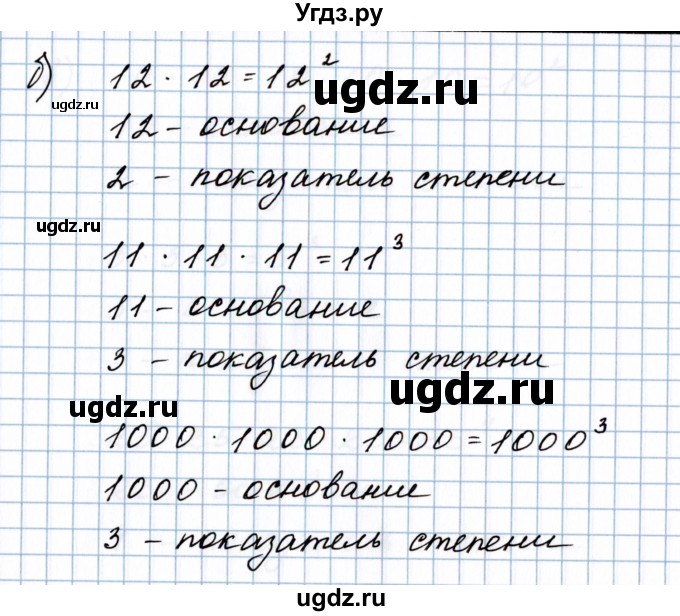 Угдз.ру
б) 12 · 12 = 12²
ugdz.ru
ugdz.ru
12 - основание
2 - показатель степени
ugdz.ru
11 · 11 · 11 = 11³
11 - основание
3 - показатель степени
ugdz.ru
ugdz.ru
1000 · 1000 · 1000 = 1000³
1000 - основание
3 - показатель степени
ugdz.ru